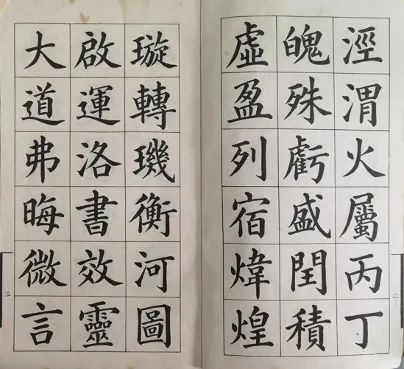 涇渭火屬丙丁
魄殊虧盛閏積
虛盈列宿煒煌
二
璇轉璣衡河圖
啟運洛書效靈
大道弗晦微言
三